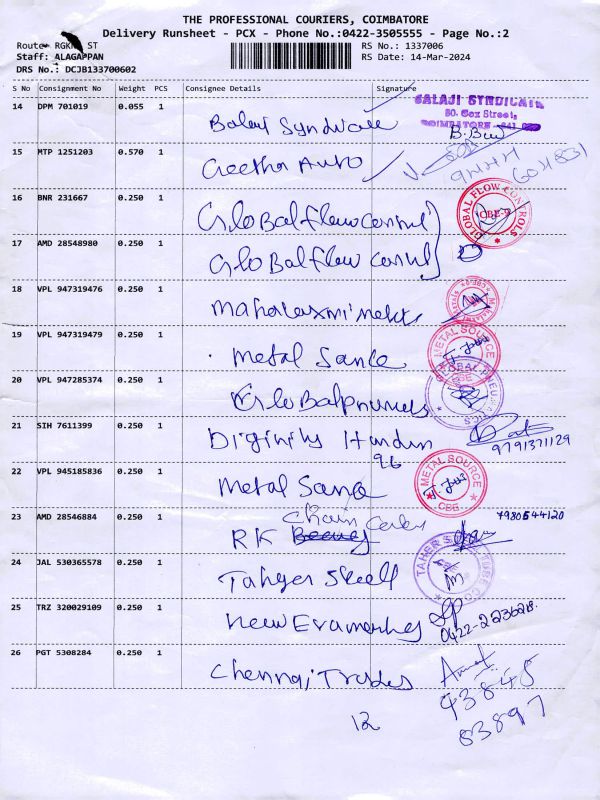 THE PROFESSIONAL COURIERS, COIMBATORE
Delivery Runsheet - PCX - Phone No.:0422-3505555 - Page No.:2
Route- RGKN ST RS No.: 1337006
Staff: ALAGAPPAN RS Date: 14-Mar-2024
DRS No.: DCJB133700602
S No Consignment No Weight PCS Consignee Details Signature
14 DPM 701019 0.055 1 Balaji Syndicate BALAJI SYNDICATE
50. Cox Street,
COIMBATORE - 641
15 MTP 1251203 0.570 1 Geetha Auto
16 BNR 231667 0.250 1 Global flow control GLOBAL FLOW CONTROLS CBE-9
17 AMD 28548980 0.250 1 Global flow control
18 VPL 947319476 0.250 1 Mahalaxmi Metals
19 VPL 947319479 0.250 1 Metal Source METAL SOURCE CBE
20 VPL 947285374 0.250 1 Global pneumatics
21 SIH 7611399 0.250 1 Diginity Handum 9791371129
96
22 VPL 945185836 0.250 1 Metal Source METAL SOURCE CBE
23 AMD 28546884 0.250 1 RK Chain 7980544120
24 JAL 530365578 0.250 1 Taher Steel TAHER
25 TRZ 320029109 0.250 1 New Era
26 PGT 5308284 0.250 1 Chennai Trades 93845
83897
12